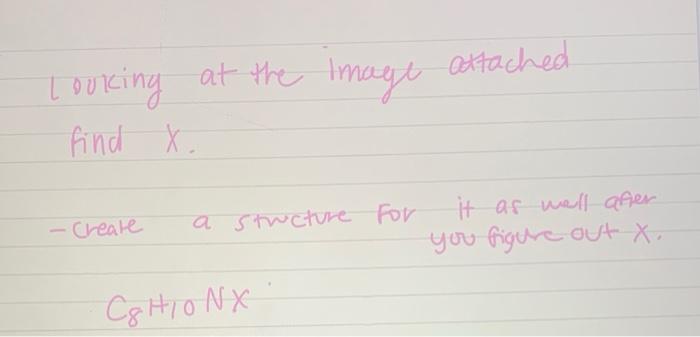 Looking at the image attached
find X.
- Create a structure for it as well after
you figure out X.
C8H10NX